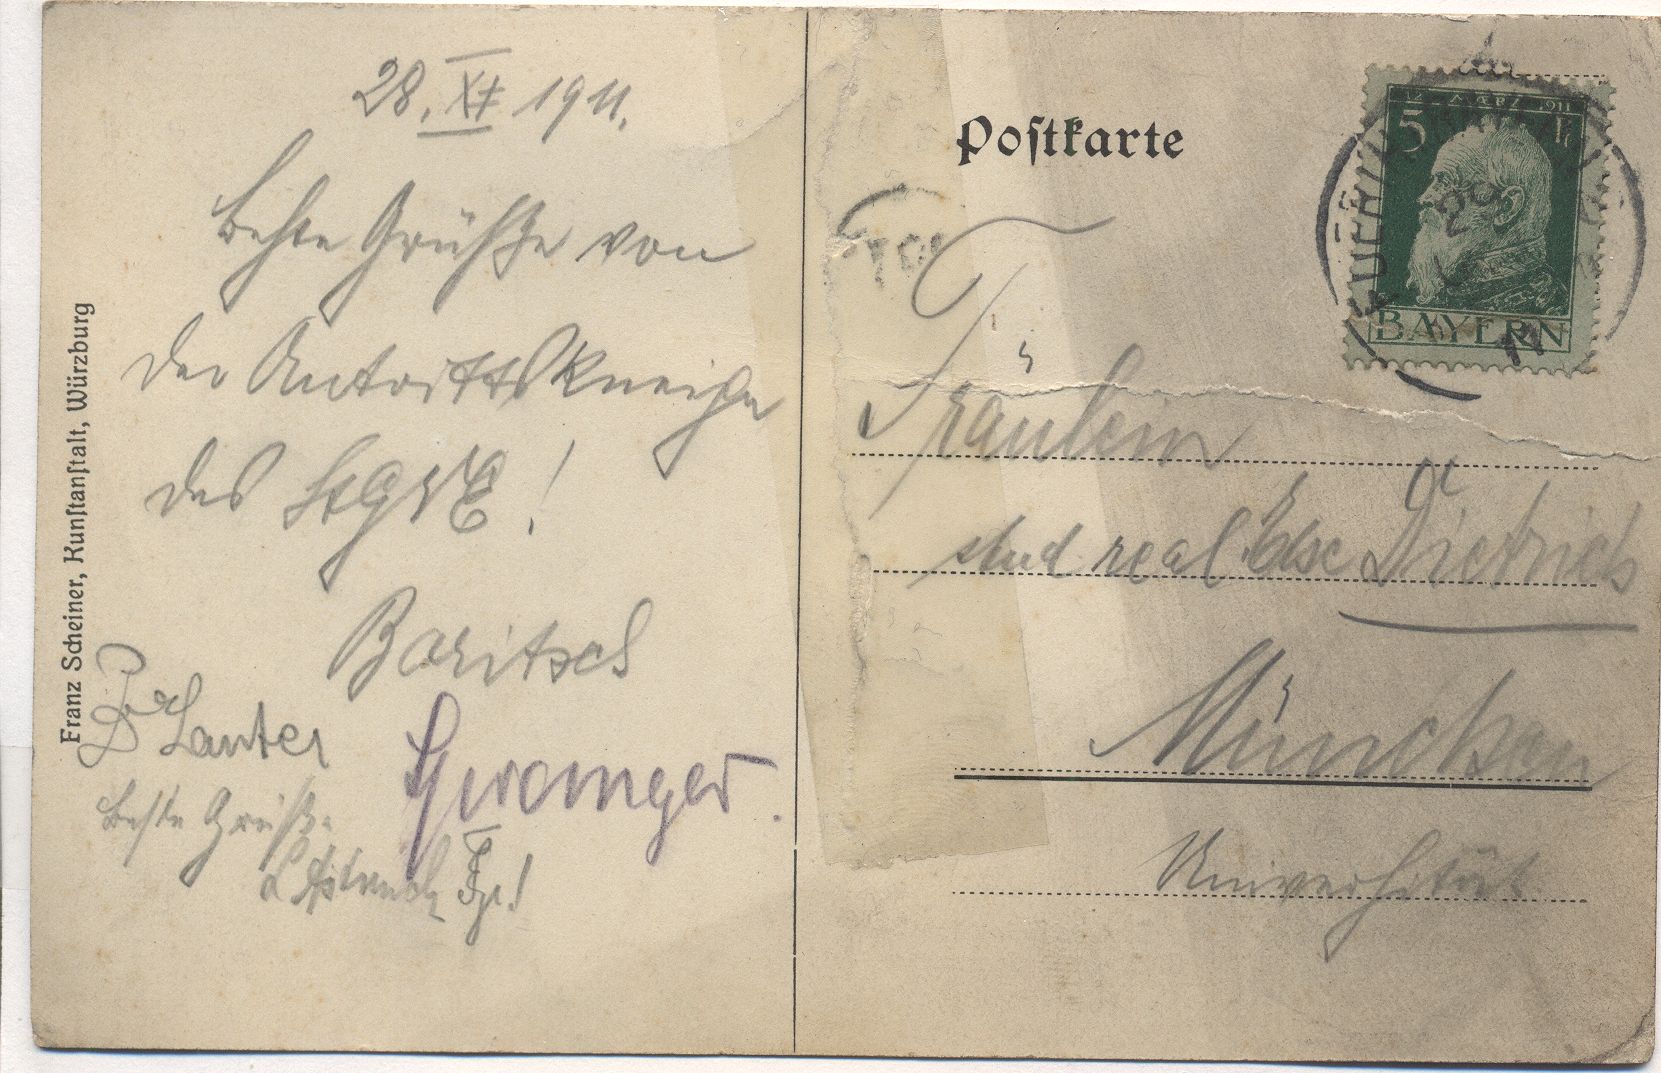 28. XI 1911.
Beste Grüße von
der Antrittskneipe
des
Baritsch
Lauter
Beste Grüße
Franz Scheiner, Kunstanstalt, Würzburg
Postkarte
5
12. MÄRZ 1911
BAYERN
29
11
Fräulein
stud real. Else Dietrich
München
Universität